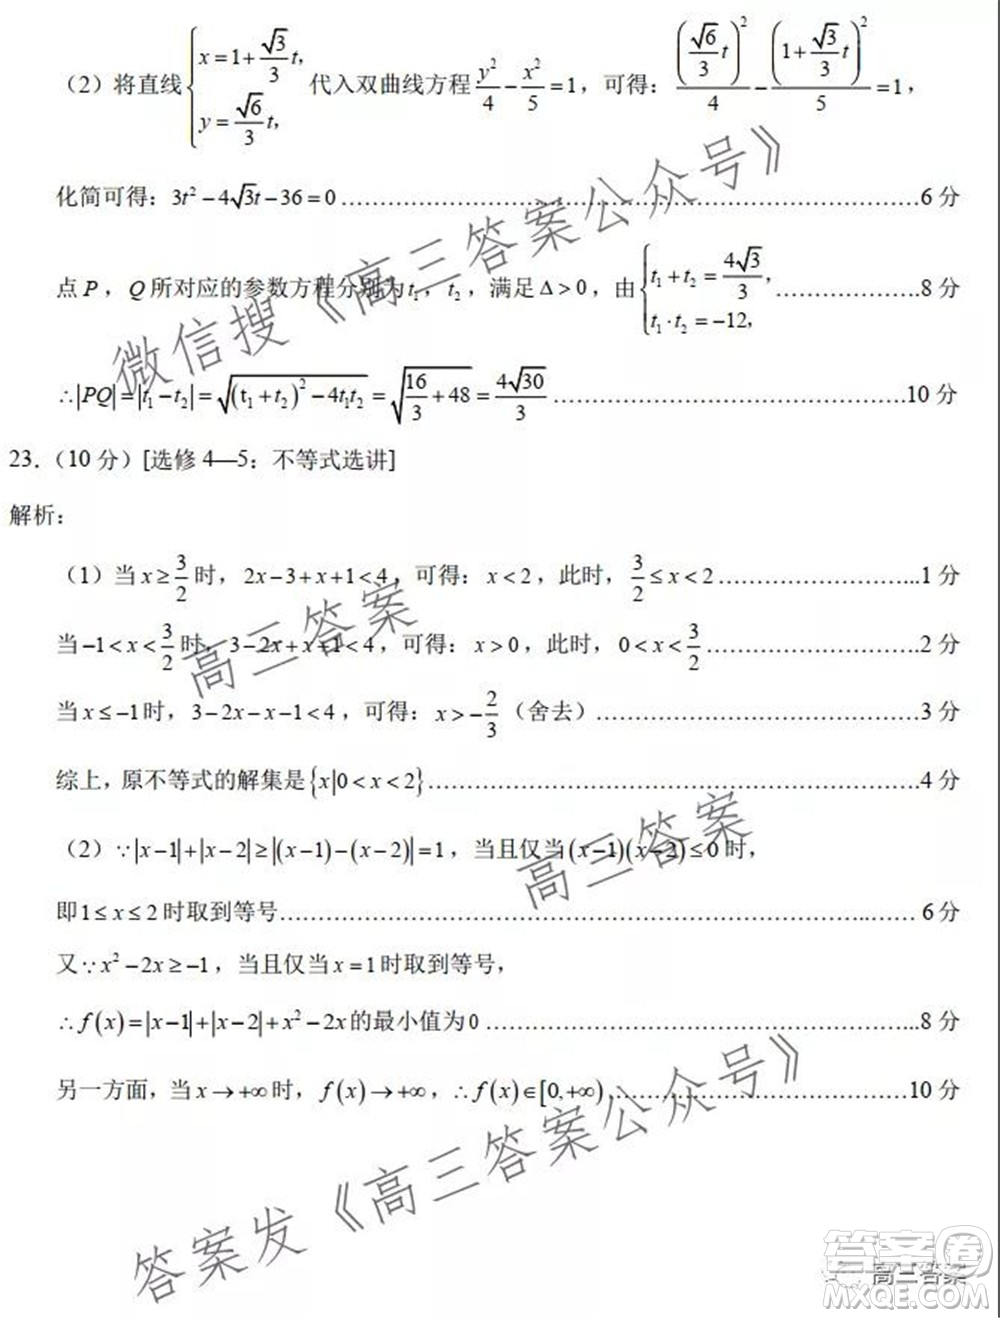 （2）将直线{x=1+√3/3 t, y=√6/3 t, 代入双曲线方程 y²/4 − x²/5 =1，可得：(√6/3 t)²/4 − (1+√3/3 t)²/5 =1，
化简可得：3t²−4√3t−36=0……………………………………………6 分
点 P，Q 所对应的参数方程分别为 t₁，t₂，满足 Δ>0，由{t₁+t₂=4√3/3, t₁·t₂=−12, ………………8 分
∴|PQ|=|t₁−t₂|=√((t₁+t₂)²−4t₁t₂)=√(16/3+48)=4√30/3……………………………10 分
23．（10 分）[选修 4—5：不等式选讲]
解析：
（1）当 x≥3/2 时，2x−3+x+1<4，可得：x<2，此时，3/2≤x<2………………………1 分
当−1<x<3/2 时，3−2x+x+1<4，可得：x>0，此时，0<x<3/2………………………2 分
当 x≤−1 时，3−2x−x−1<4，可得：x>−2/3（舍去）………………………………3 分
综上，原不等式的解集是{x|0<x<2}……………………………………………4 分
（2）∵|x−1|+|x−2|≥|(x−1)−(x−2)|=1，当且仅当(x−1)(x−2)≤0 时，
即1≤x≤2 时取到等号………………………………………………………6 分
又∵x²−2x≥−1，当且仅当 x=1 时取到等号，
∴f(x)=|x−1|+|x−2|+x²−2x 的最小值为 0………………………………………8 分
另一方面，当 x→+∞ 时，f(x)→+∞，∴f(x)∈[0,+∞)………………………………10 分
微信搜《高三答案公众号》
高三答案
高三答案
答案发《高三答案公众号》
高三答案
答案卷
MXQE.COM